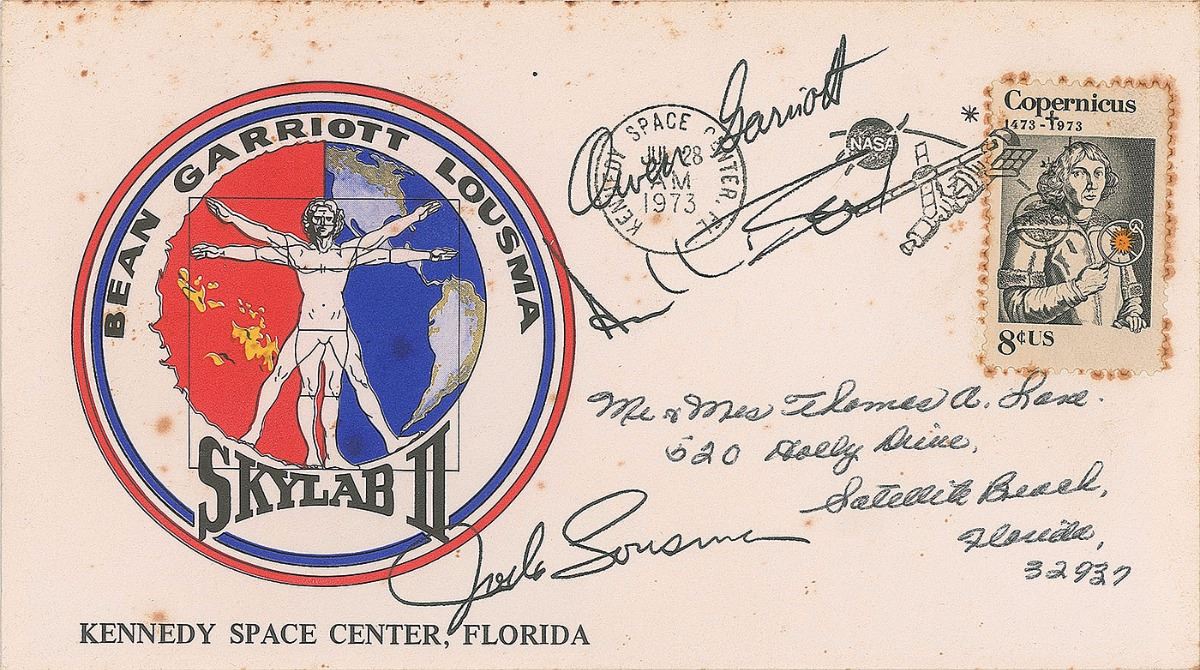 BEAN GARRIOTT LOUSMA
SKYLAB II
KENNEDY SPACE CENTER, FLORIDA
Owen Garriott
KENNEDY SPACE CENTER, FL
JUL 28
AM
1973
NASA
Copernicus
1473-1973
8¢US
Mr & Mrs Thomas A.
520 Holly Drive,
Satellite Beach,
Florida,
32937
Jack Lousma